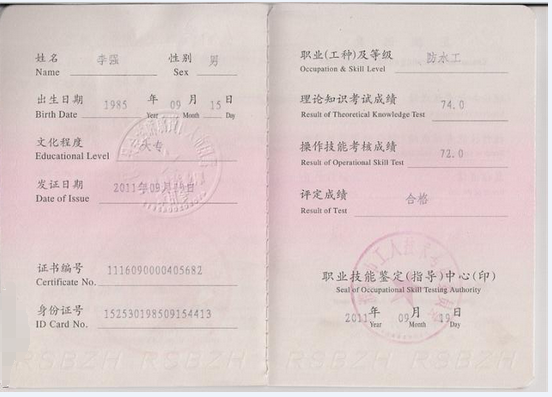 姓名 李强 性别 男
Name Sex
出生日期 1985 年 09 月 15 日
Birth Date Year Month Day
文化程度 大专
Educational Level
发证日期 2011年09月19日
Date of Issue
证书编号 1116090000405682
Certificate No.
身份证号 152530198509154413
ID Card No.
职业(工种)及等级 防水工
Occupation & Skill Level
理论知识考试成绩 74.0
Result of Theoretical Knowledge Test
操作技能考核成绩 72.0
Result of Operational Skill Test
评定成绩 合格
Result of Test
职业技能鉴定(指导)中心(印)
Seal of Occupational Skill Testing Authority
2011 年 09 月 19 日
Year Month Day
RSBZH RSBZH RSBZH RSBZH